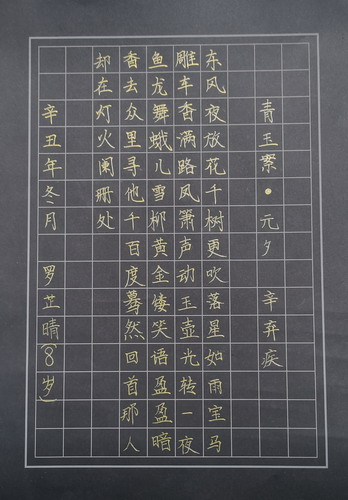 青玉案•元夕 辛弃疾
东风夜放花千树更吹落星如雨宝马
雕车香满路凤箫声动玉壶光转一夜
鱼龙舞蛾儿雪柳黄金缕笑语盈盈暗
香去众里寻他千百度蓦然回首那人
却在灯火阑珊处
辛丑年冬月 罗芷晴(8岁)